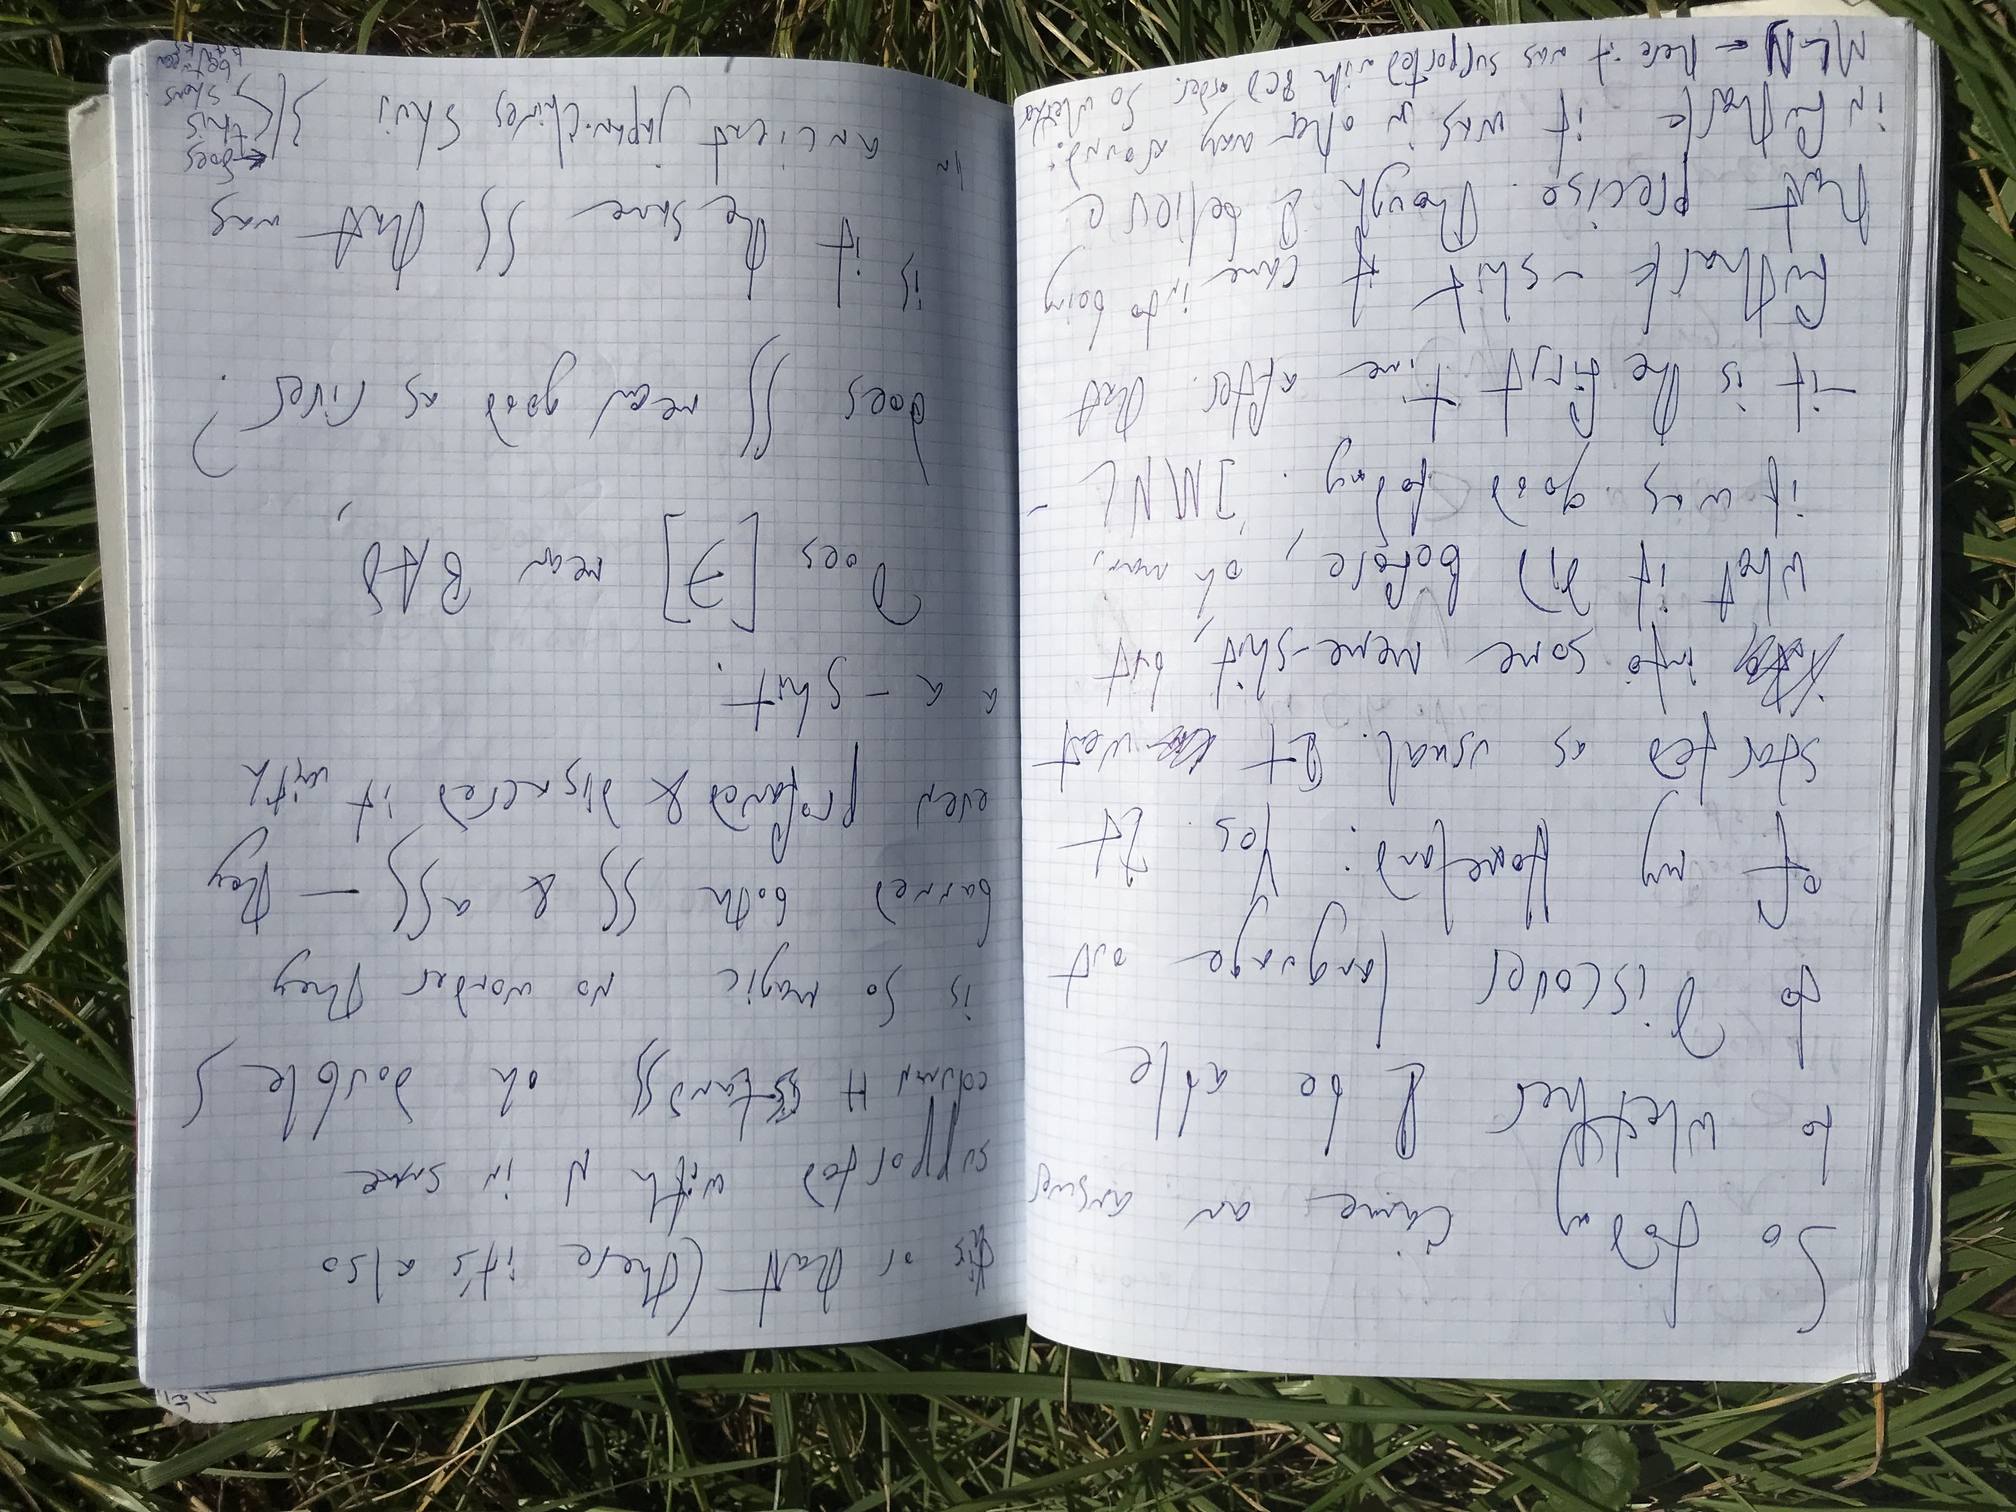 So today came an answer
to whether I be able
to Discover language out
of my Homeland: Yes. It
started as usual. It went
into some meme-shit, but
what it did before, oh man,
it was good today. IMNL -
- it is the first time after that
futhark - shit it came into being
that precise. Though I believe
in futhark it was in other way around:
MLN - here it was supported with BCD order. So whether
this or that (there it's also
supported with N in same
column H stands) oh double S
is so magic no wonder they
banned both SS & aSS — they
even profaned & disnered it with
a a - shit.
Does [ ] mean BAD,
does SS mean good as river?
is it the same SS that was
in ancient japan-chines Shui
does
this
shows
between